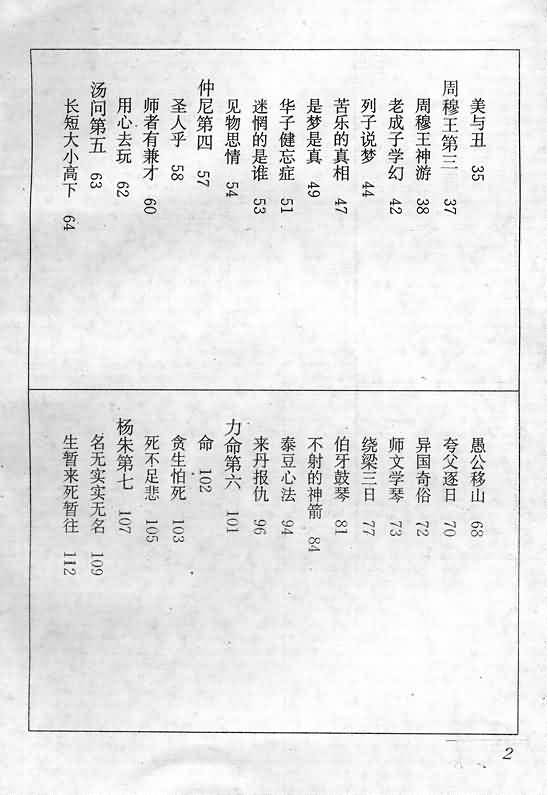 美与丑 35
周穆王第三 37
周穆王神游 38
老成子学幻 42
列子说梦 44
苦乐的真相 47
是梦是真 49
华子健忘症 51
迷惘的是谁 53
见物思情 54
仲尼第四 57
圣人乎 58
师者有兼才 60
用心去玩 62
汤问第五 63
长短大小高下 64
愚公移山 68
夸父逐日 70
异国奇俗 72
师文学琴 73
绕梁三日 77
伯牙鼓琴 81
不射的神箭 84
泰豆心法 94
来丹报仇 96
力命第六 101
命 102
贪生怕死 103
死不足悲 105
杨朱第七 107
名无实实无名 109
生暂来死暂往 112
2